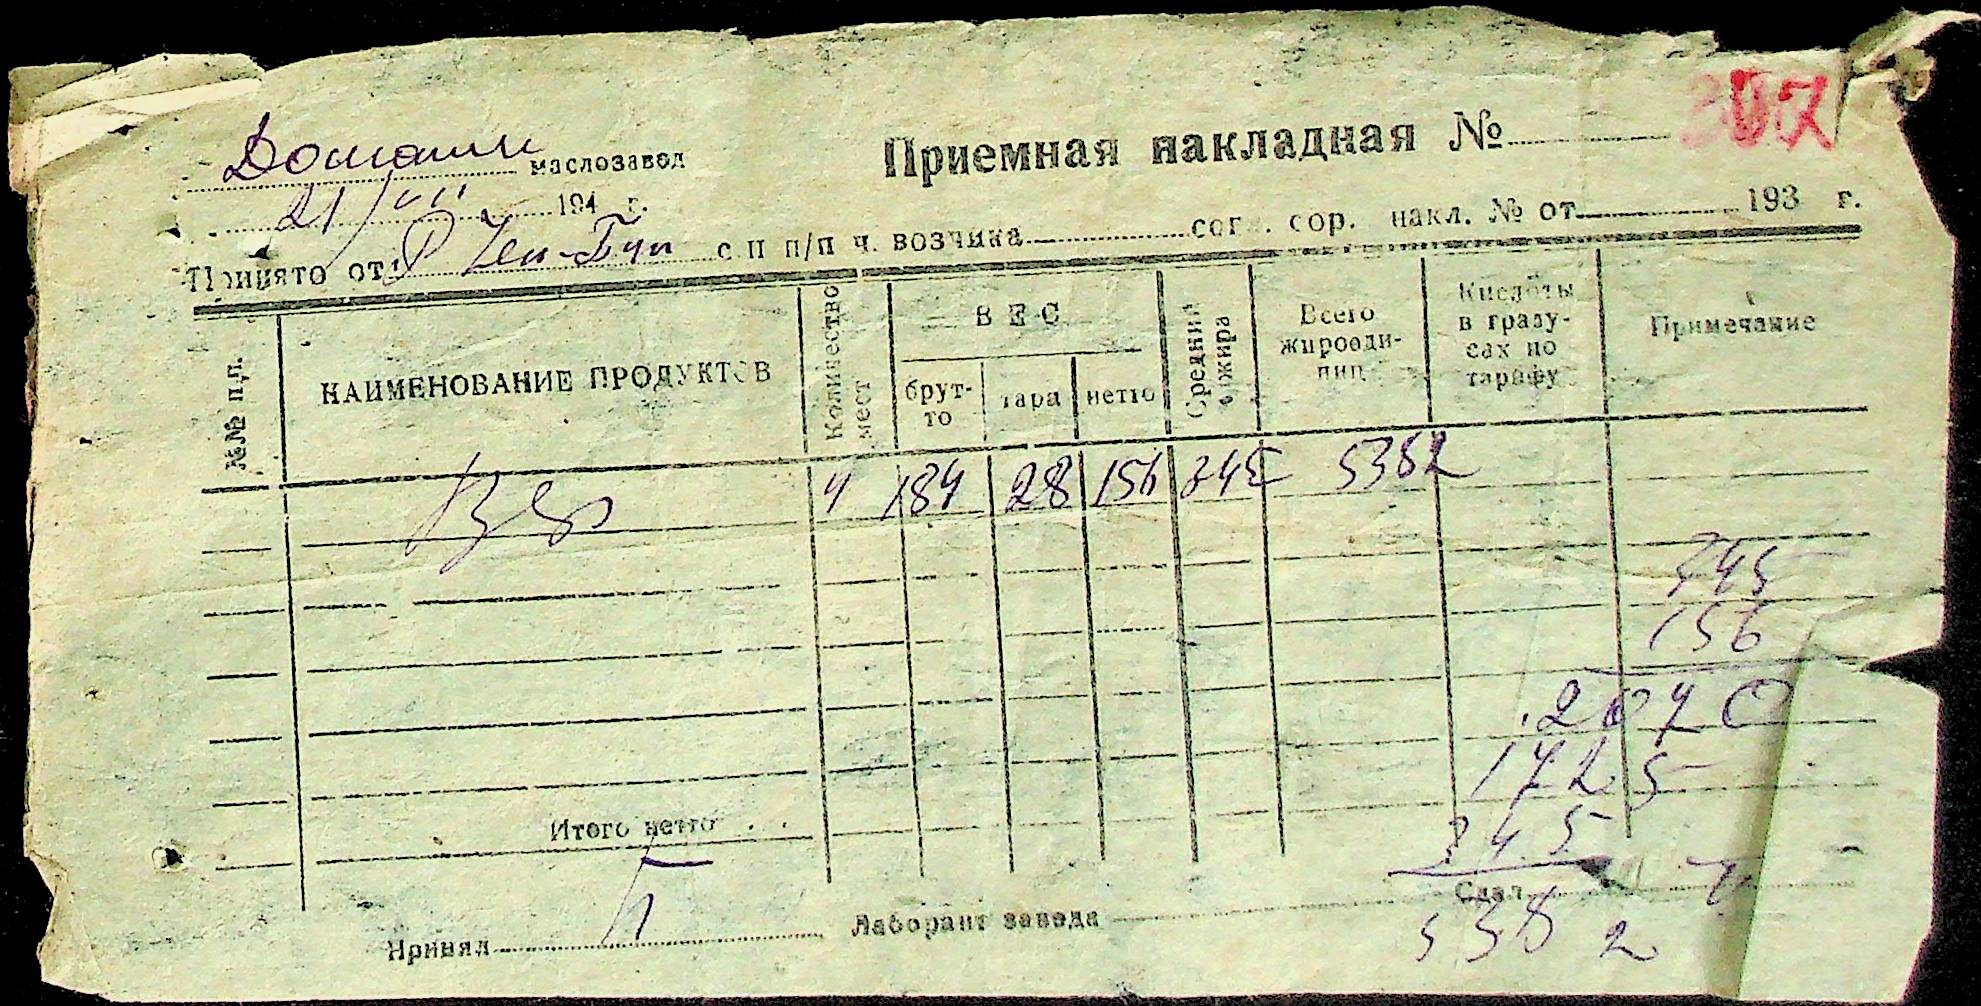 Приемная накладная №
маслозавод
21/VII 194 г.
Принято от с п п/п ч. возчика сог. сор. накл. № от 193 г.
№№ п.п. НАИМЕНОВАНИЕ ПРОДУКТОВ Количество мест ВЕС брут-то тара нетто Средний % жира Всего жироеди-ниц Кислоты в граду-сах по тарифу Примечание
4 184 28 156 345 5382
345
156
2070
1725
345
5382
Итого нетто
Принял Лаборант завода Сдал